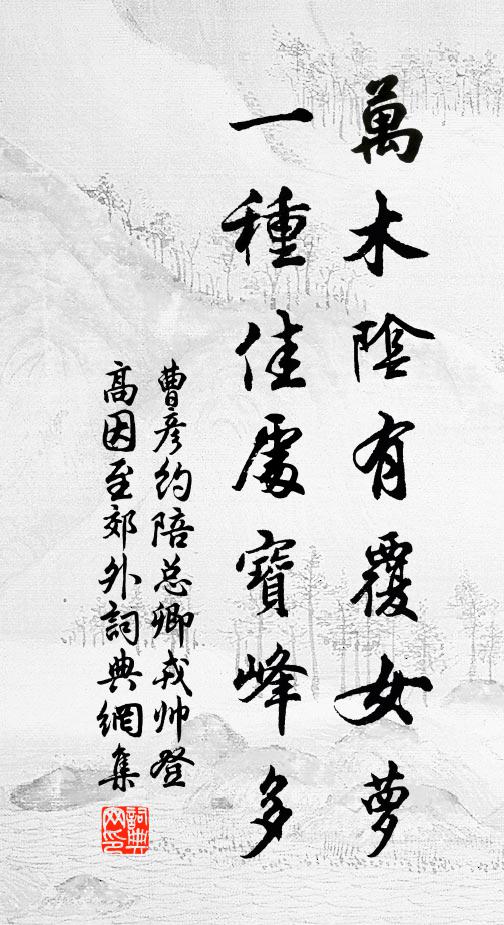 萬木陰有覆女夢
一種佳處寶峰多
曹彦約陪总卿戎帅登
高因至郊外詞典網集
詞典网印